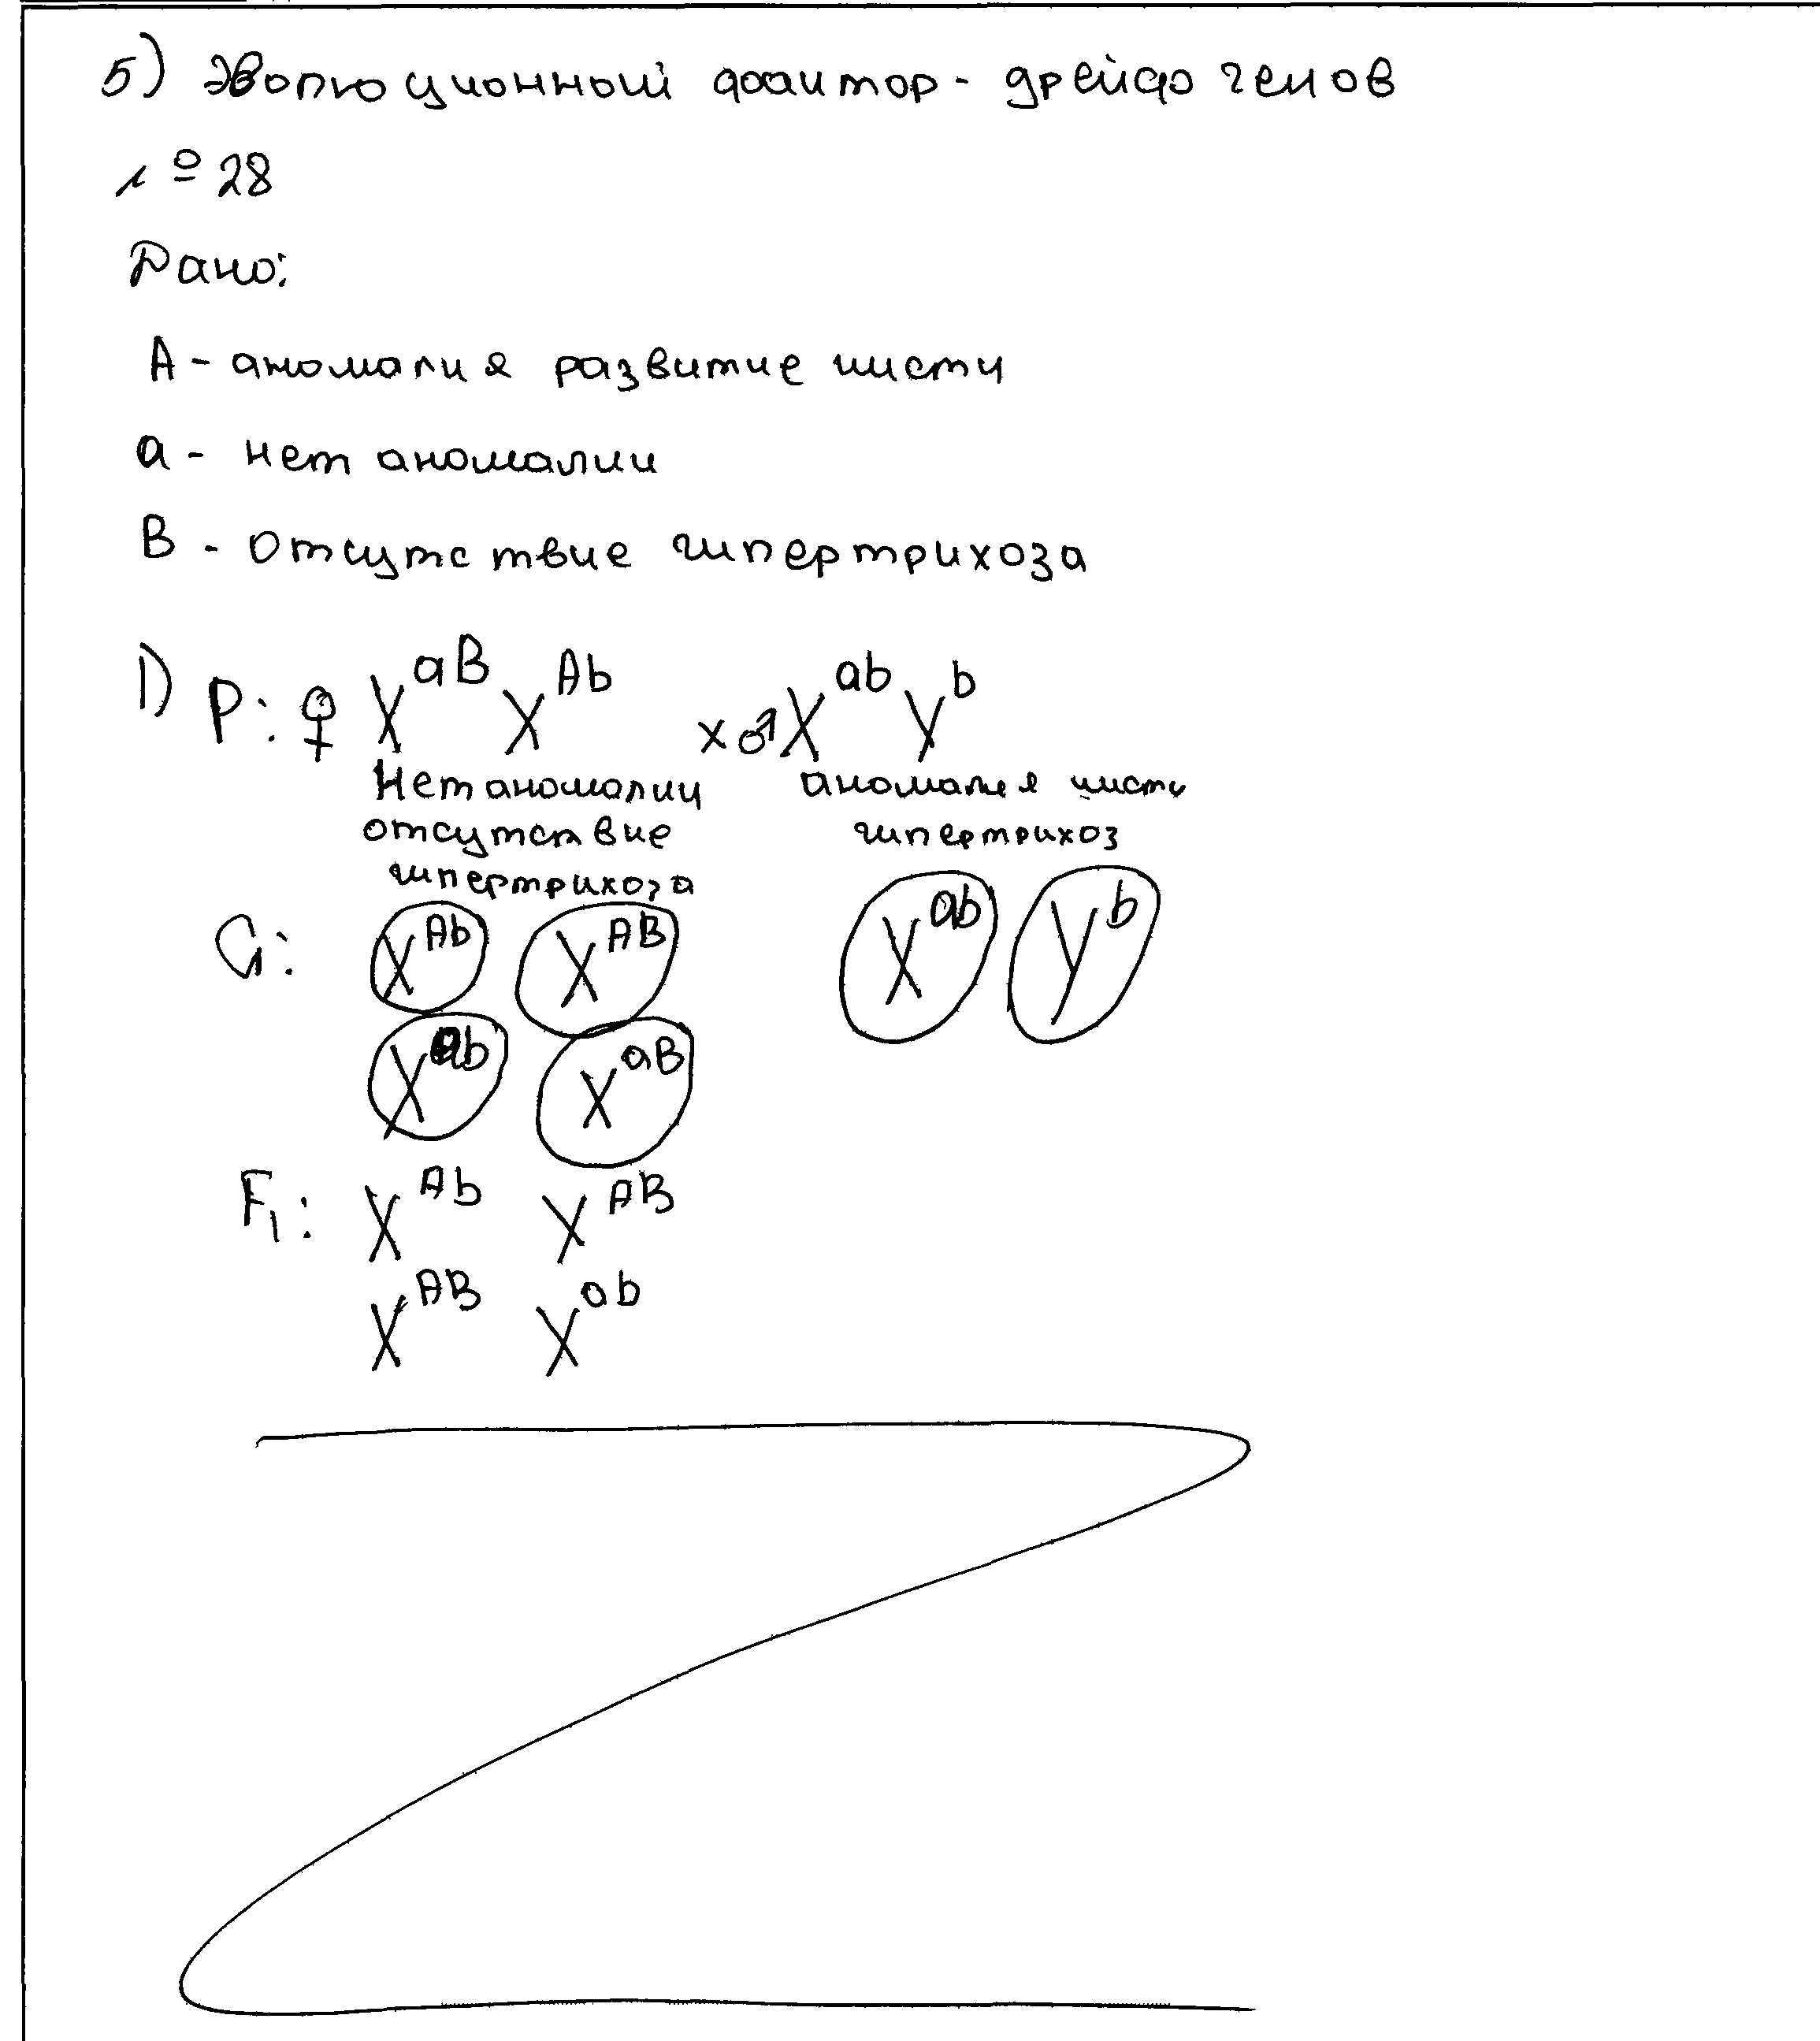 5) Эволюционный фактор - дрейф генов
№ 28
Дано:
A - аномалия развитие кисти
a - нет аномалии
B - отсутствие гипертрихоза
1) P: ♀ X^aB X^Ab x ♂ X^ab Y^b
Нет аномалии аномалия кисти
отсутствие гипертрихоз
гипертрихоза
G: X^Ab X^AB X^ab Y^b
X^ab X^aB
F1: X^Ab X^AB
X^AB X^ab